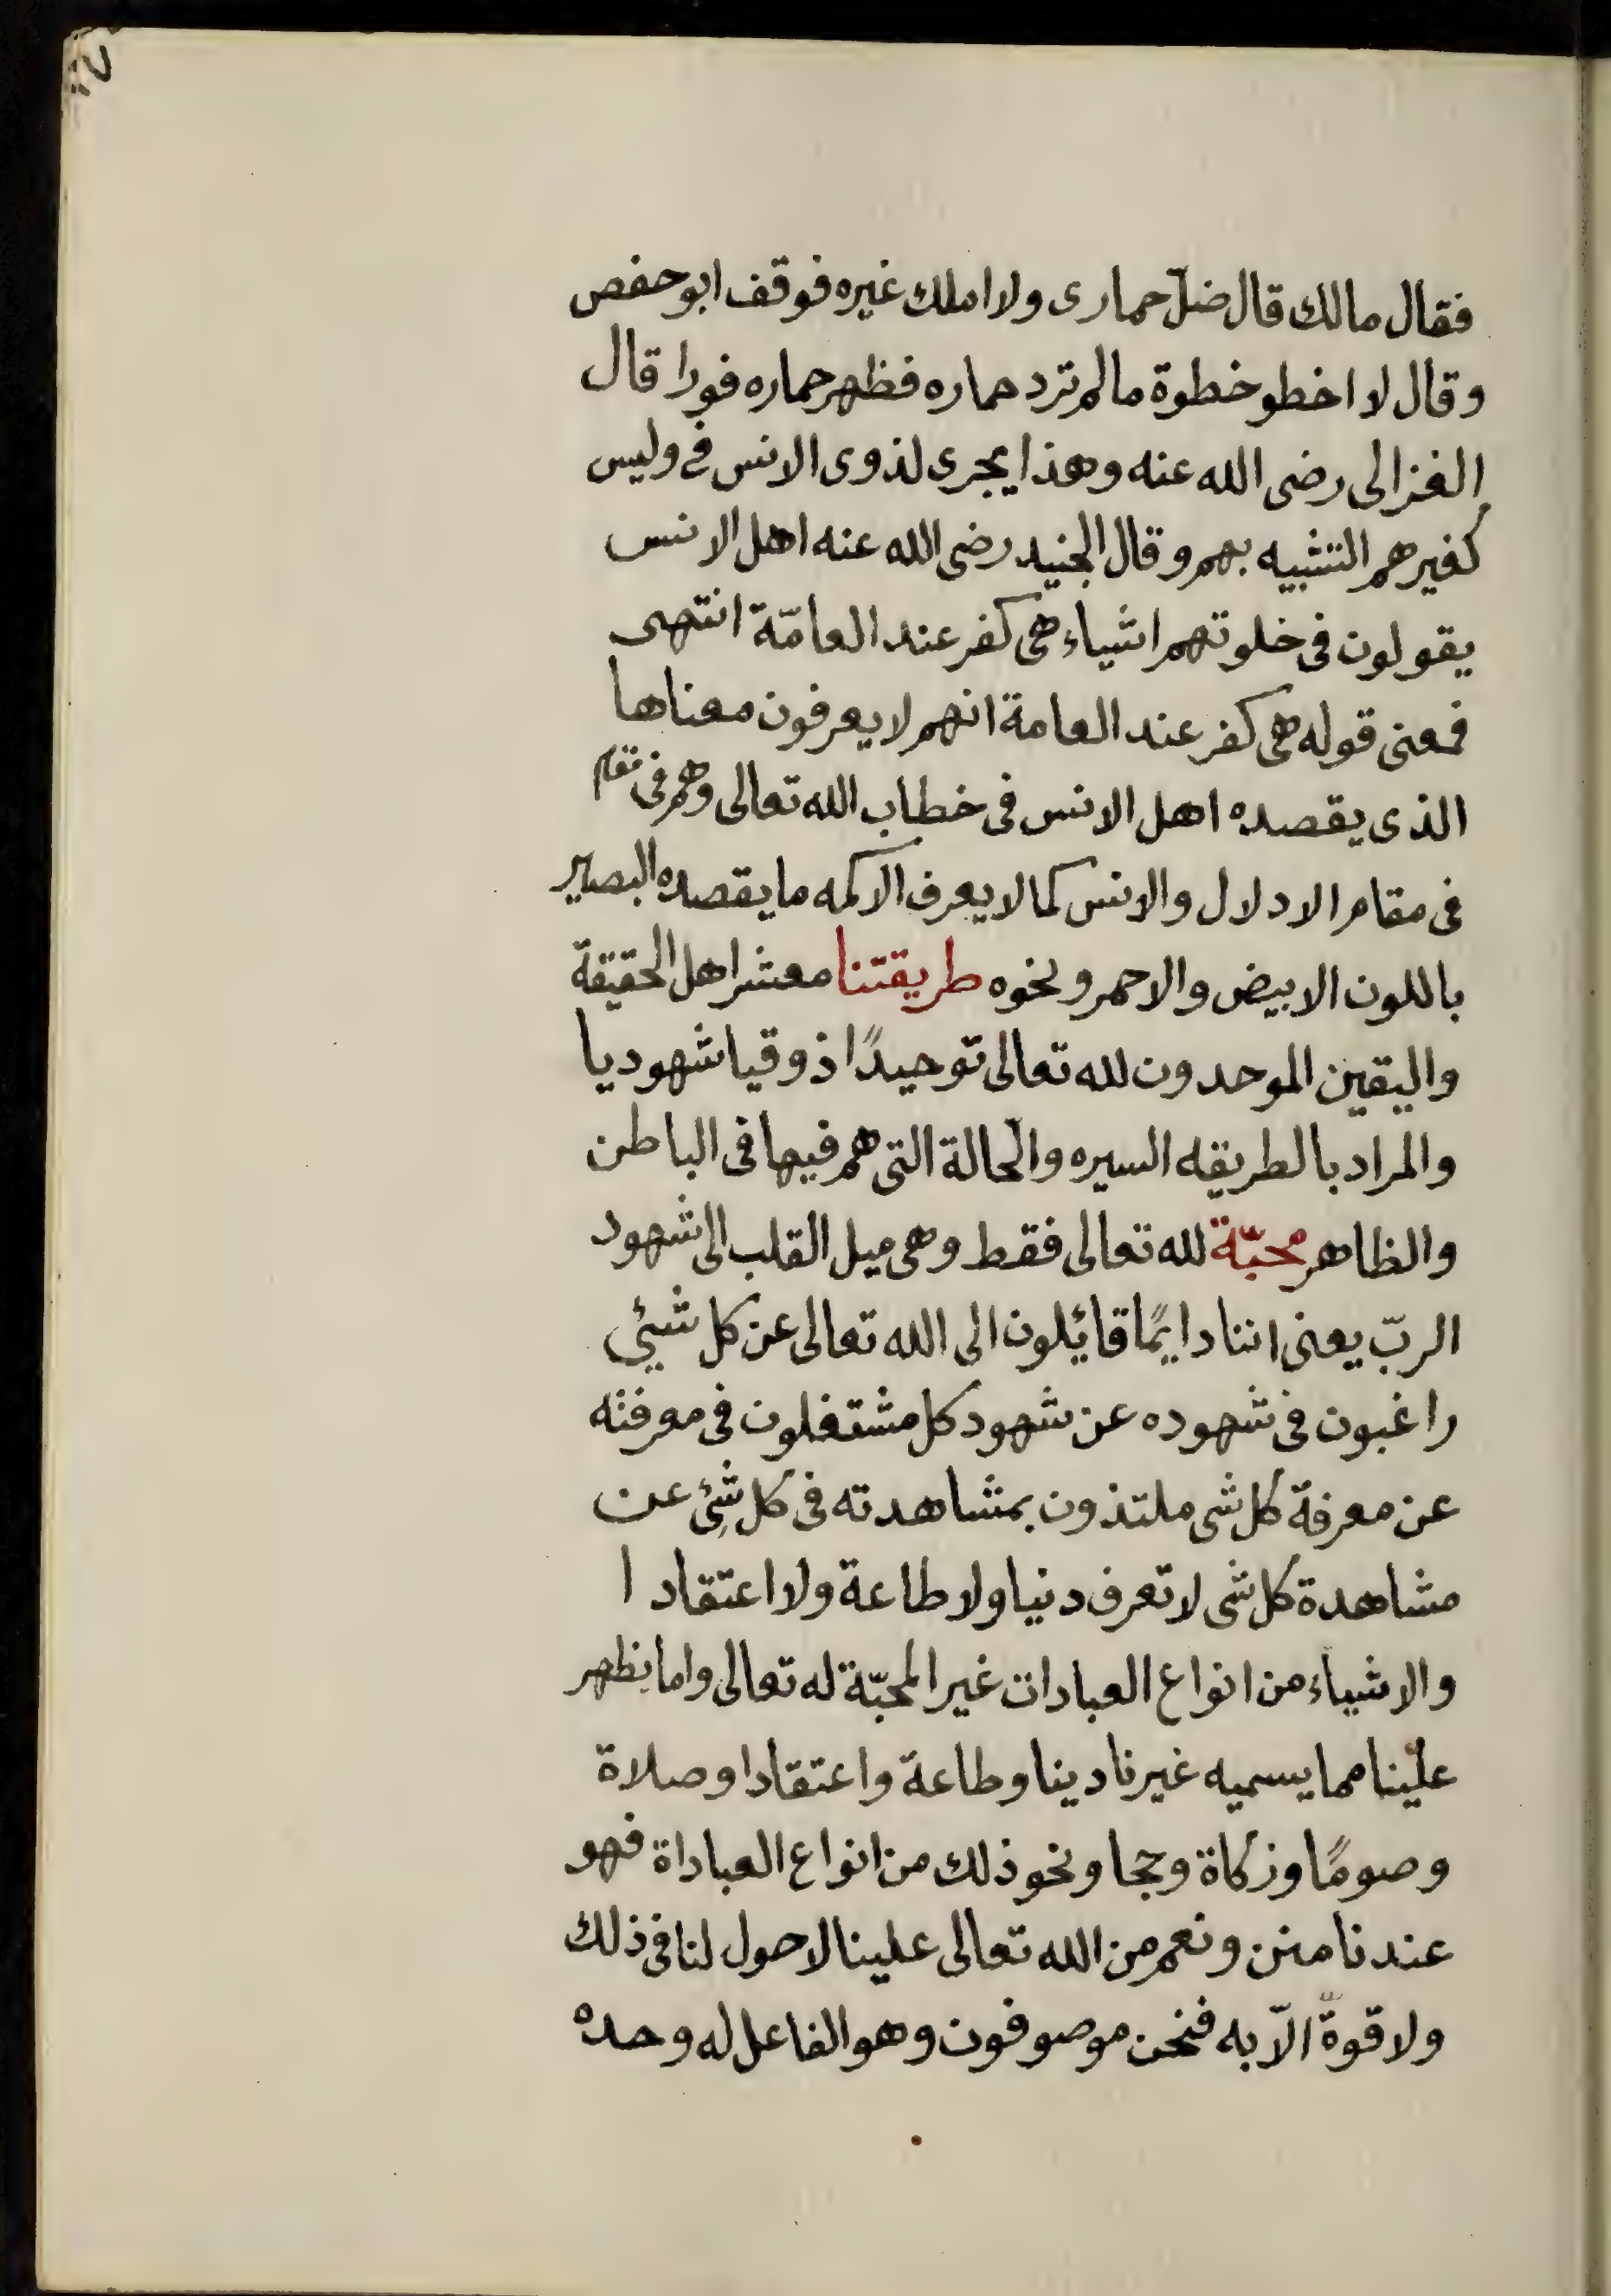 فقال مالك قال ضلّ حمارى ولا املك غيره فوقف ابو حفص
وقال لا اخطو خطوة مالم ترد حماره فظهر حماره فورا قال
الغزالى رضى الله عنه وهذا يجرى لذوى الانس فى وليس
كغيرهم التشبيه بهم وقال الجنيد رضى الله عنه اهل الانس
يقولون فى خلوتهم اشياء هى كفر عند العامّة انتهى
فمعنى قوله هى كفر عند العامة انهم لا يعرفون معناها
الذى يقصده اهل الانس فى خطاب الله تعالى وهم فى مقام
فى مقام الادلال والانس كما لا يعرف الاكمه ما يقصده البصير
باللون الابيض والاحمر ونحوه طريقتنا معشر اهل الحقيقة
واليقين الموحدون لله تعالى توحيدًا ذوقيا شهوديا
والمراد بالطريقه السيره والحالة التى هم فيها فى الباطن
والظاهر محبّة لله تعالى فقط وهى ميل القلب الى شهود
الربّ يعنى اننا دايمًا قائلون الى الله تعالى عن كل شيئ
راغبون فى شهوده عن شهود كل مشتغلون فى معرفته
عن معرفة كل شى ملتذون بمشاهدته فى كل شئ عن
مشاهدة كل شى لا تعرف دنيا ولا طاعة ولا اعتقادا
والاشياء من انواع العبادات غير المحبّة له تعالى واما يظهر
علينا مما يسميه غيرنا دينا وطاعة واعتقادا وصلاة
وصومًا وزكاة وحجا ونحو ذلك من انواع العباداة فهو
عندنا منن ونعم من الله تعالى علينا لاحول لنا فى ذلك
ولا قوة الّا به فنحن موصوفون وهو الفاعل له وحده